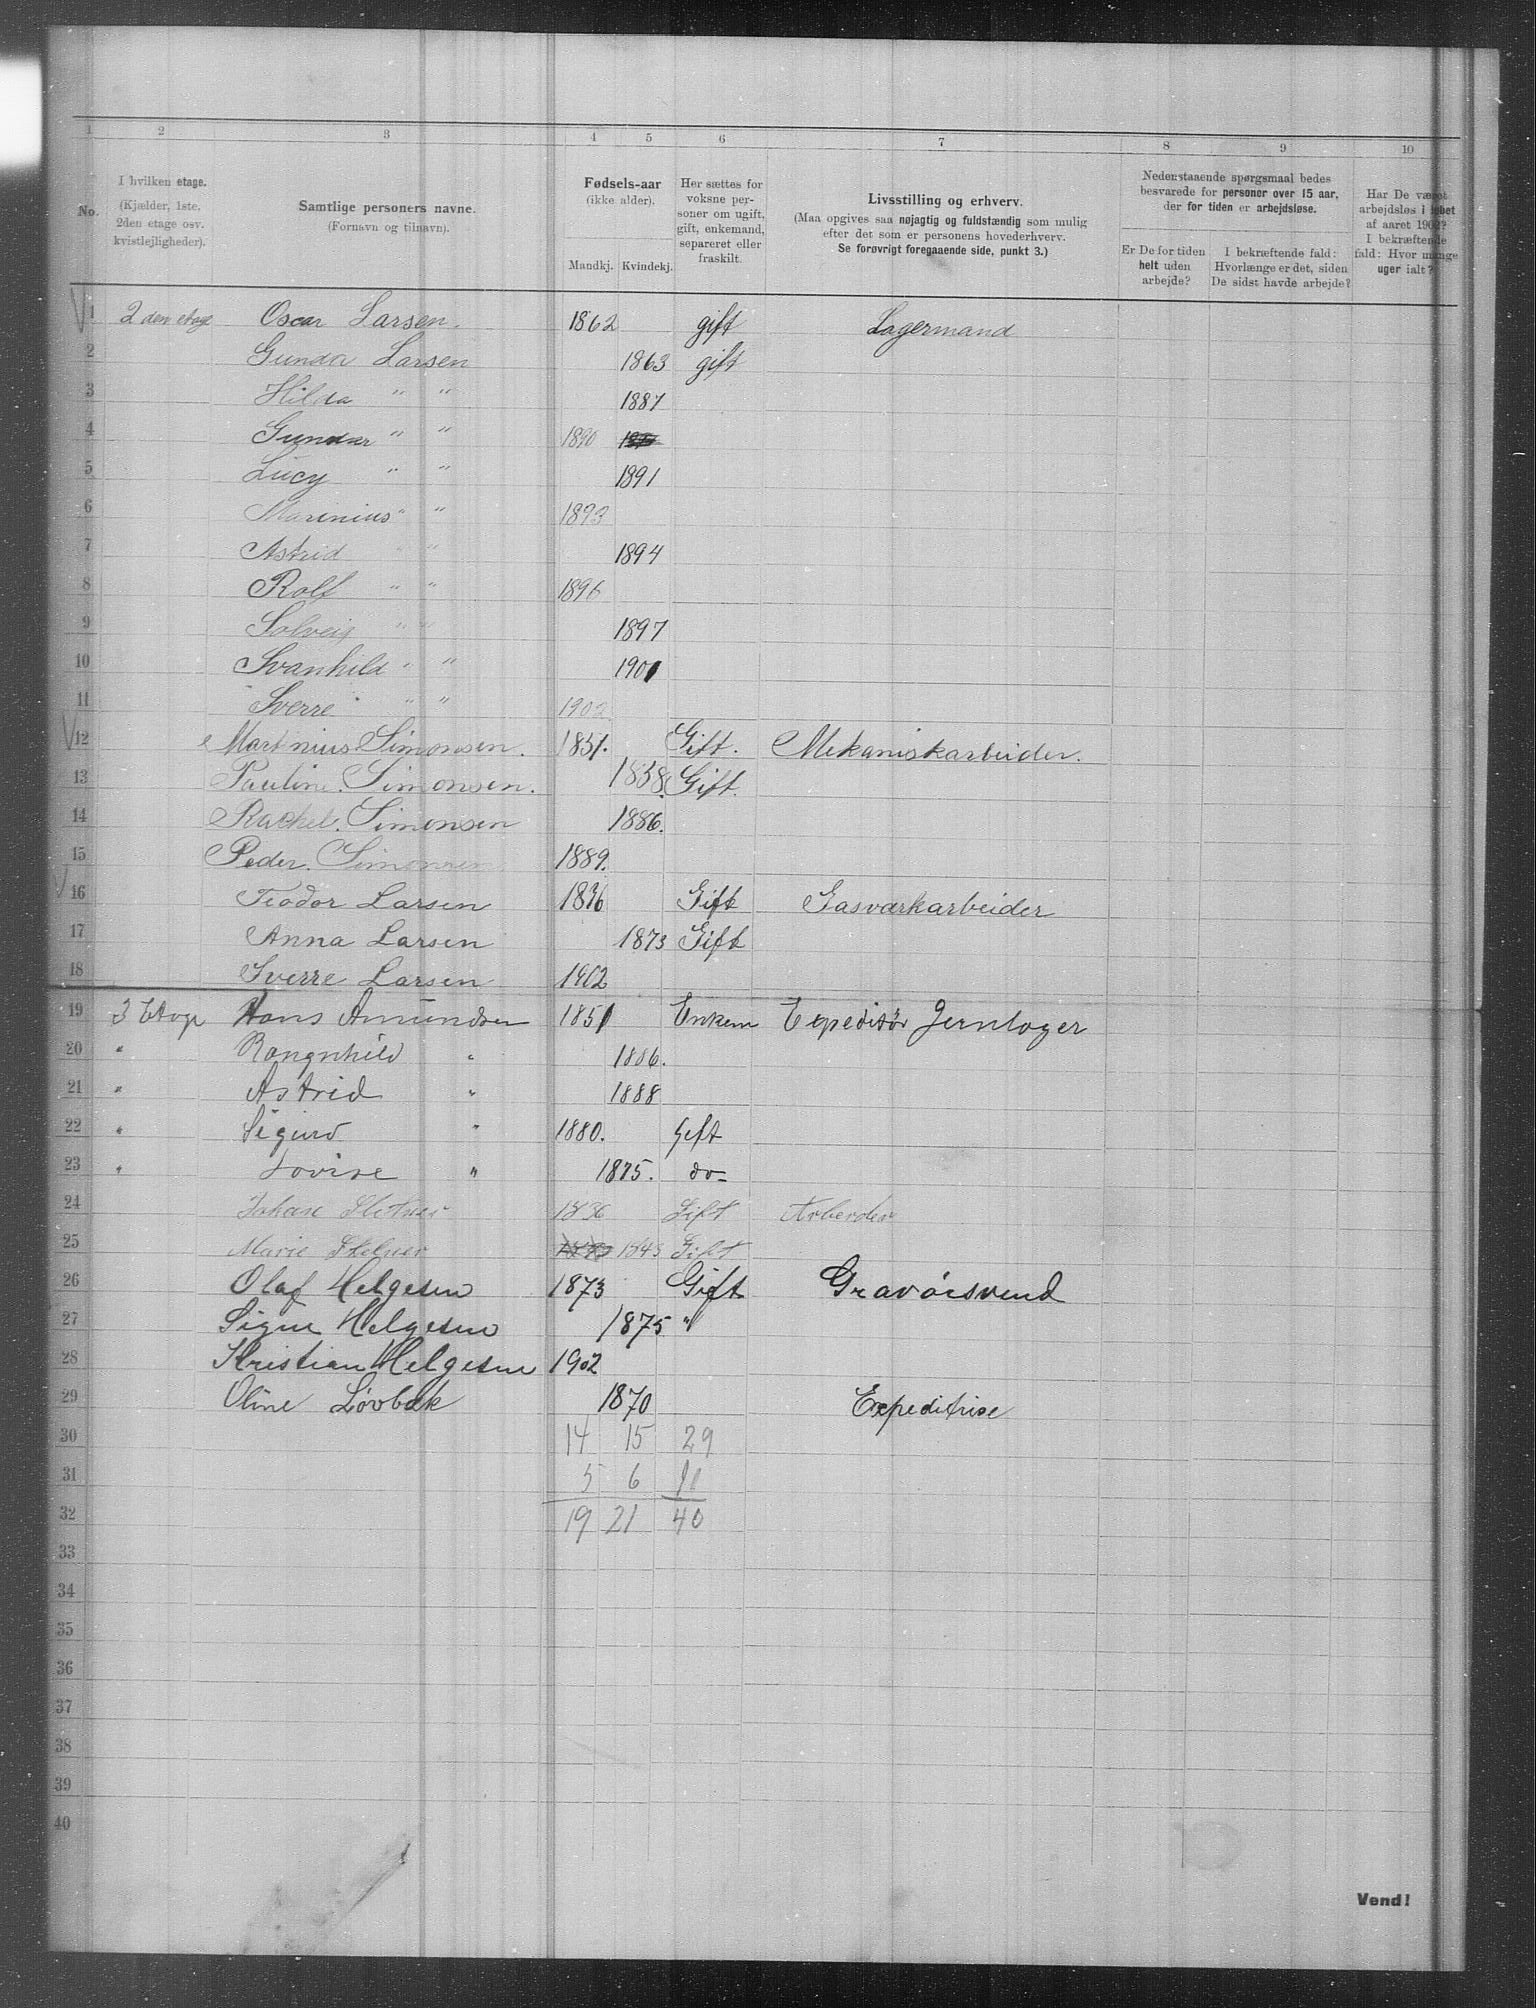 1 2 3 4 5 6 7 8 9 10
No.
I hvilken etage.
(Kjælder, 1ste,
2den etage osv.
kvistlejligheder).
Samtlige personers navne.
(Fornavn og tilnavn).
Fødsels-aar
(ikke alder).
Mandkj. Kvindekj.
Her sættes for
voksne per-
soner om ugift,
gift, enkemand,
separeret eller
fraskilt.
Livsstilling og erhverv.
(Maa opgives saa nøjagtig og fuldstændig som mulig
efter det som er personens hovederhverv.
Se forøvrigt foregaaende side, punkt 3.)
Nedenstaaende spørgsmaal bedes
besvarede for personer over 15 aar,
der for tiden er arbejdsløse.
Er De for tiden
helt uden
arbejde?
I bekræftende fald:
Hvorlænge er det, siden
De sidst havde arbejde?
Har De været
arbejdsløs i løbet
af aaret 1902?
I bekræftende
fald: Hvor mange
uger ialt?
1 2 den etage Oscar Larsen. 1862 gift Lagermand
2 Gunda Larsen 1863 gift
3 Hilda " " 1887
4 Gunnar " " 1890
5 Lucy " " 1891
6 Marinius " " 1893
7 Astrid " " 1894
8 Rolf " " 1896
9 Solveig " " 1897
10 Svanhild " " 1901
11 Sverre " " 1902
12 Martinius Simonsen. 1831. Gift. Mekaniskarbeider.
13 Pauline. Simonsen. 1838. Gift.
14 Rachel. Simonsen 1886.
15 Peder. Simonsen 1889.
16 Teodor Larsen 1876 Gift Gasværkarbeider
17 Anna Larsen 1873 Gift
18 Sverre Larsen 1902
19 3 Etage Hans Amundsen 1851 Enkem Expeditør Jernlager
20 " Rangnhild " 1886.
21 " Astrid " 1888
22 " Sigurd " 1880. Gift
23 " Lovise " 1875. do-
24 Johan 1836 Gift Arbeider
25 Marie 1843 Gift
26 Olaf Helgesen 1873 Gift Gravørsvend
27 Signe Helgesen 1875 "
28 Kristian Helgesen 1902
29 Oline Løvbæk 1870 Expeditrise
30 14 15 29
31 5 6 11
32 19 21 40
33
34
35
36
37
38
39
40
Vend!